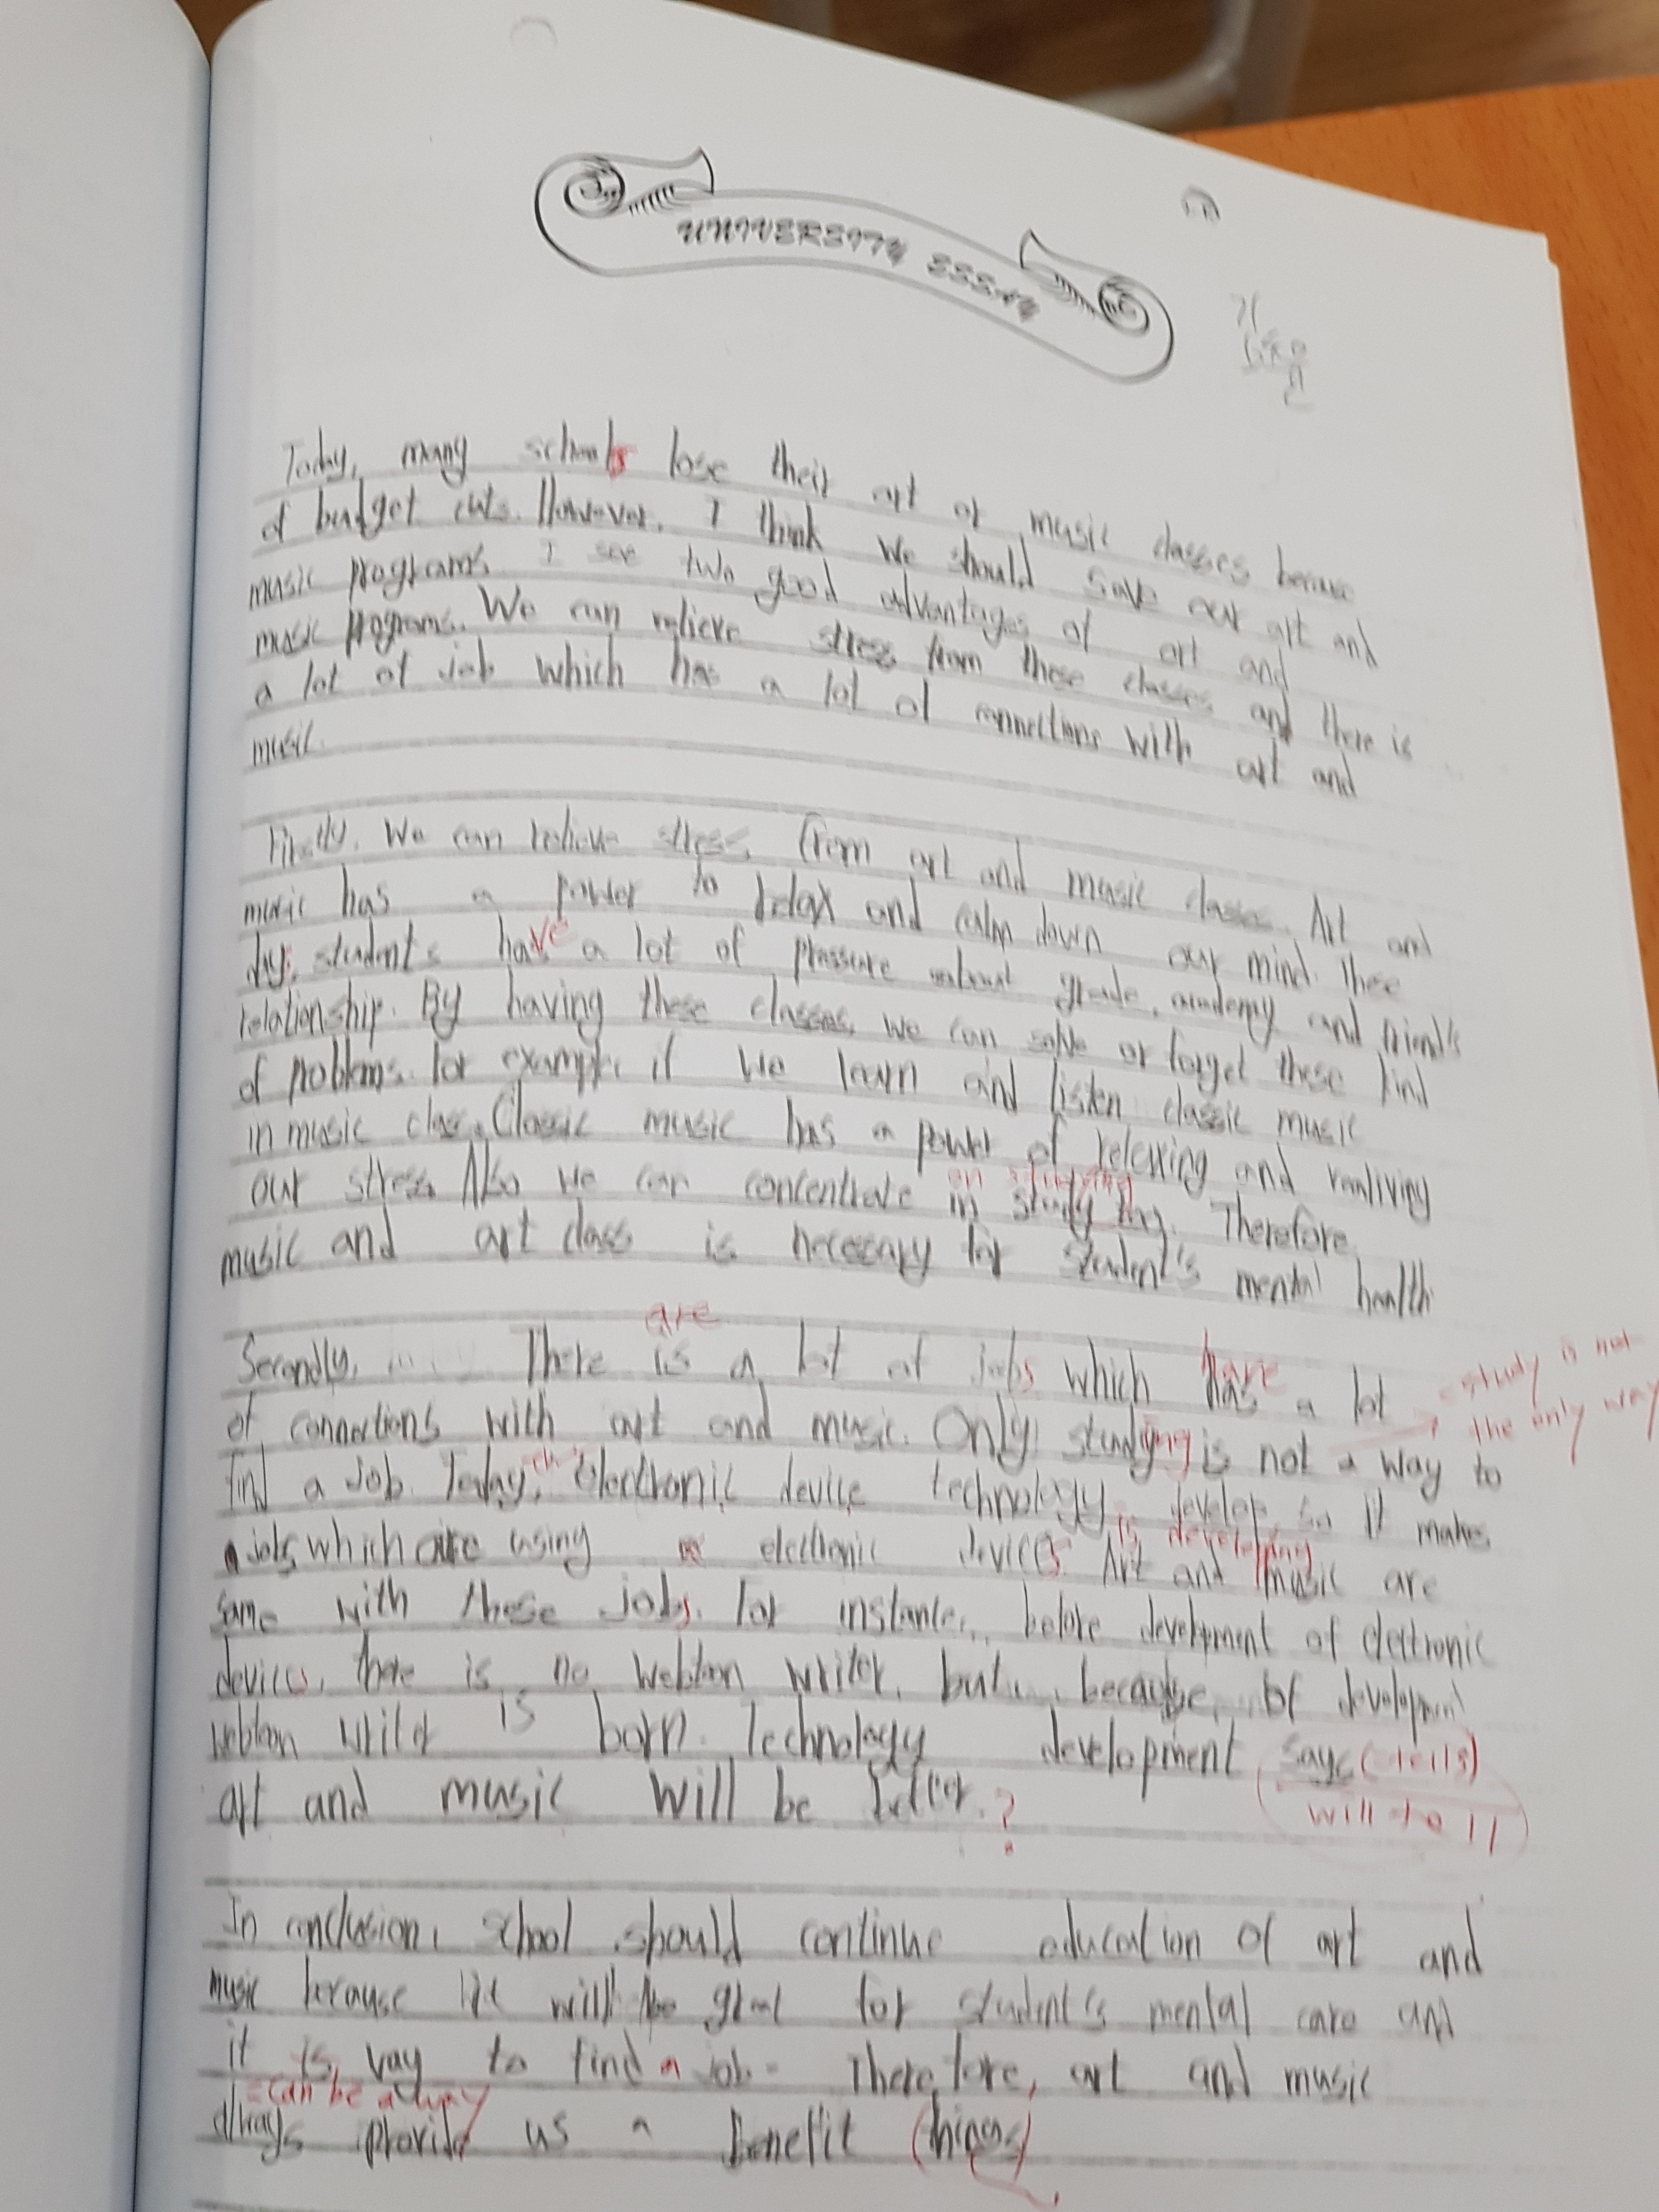 UNIVERSITY ESSAY
Today, many schools lose their art or music classes because
of budget cuts. However, I think we should save our art and
music programs. I see two good advantages of art and
music programs. We can relieve stress from these classes and there is
a lot of job which has a lot of connections with art and
music.
Firstly, We can relieve stress from art and music classes. Art and
music has a power to relax and calm down our mind. These
day, students have a lot of pressure about grade, academy and friend's
relationship. By having these classes, we can solve or forget these kind
of problems. For example, if we learn and listen classic music
in music class, Classic music has a power of relexing and realiving
on studying
our stress. Also we can concentrate in study ing. Therefore,
music and art class is necessary for student's mental health
are
Secondly, There is a lot of jobs which have a lot
= study is not
of connections with art and music. Only studying is not a way to
the only way
find a job. Today, electronic device technology develop so it makes
is developing
a jobs which are using electronic devices. Art and music are
same with these jobs. For instance, before development of electronic
devices, there is no webtoon writer, but because of development
webtoon writer is born. Technology development says (tells)
will to ll
art and music will be better. ?
In conclusion, school should continue education of art and
music because it will be great for student's mental care and
it is way to find a job. Therefore, art and music
= can be a way
always provide us a benefit (things)